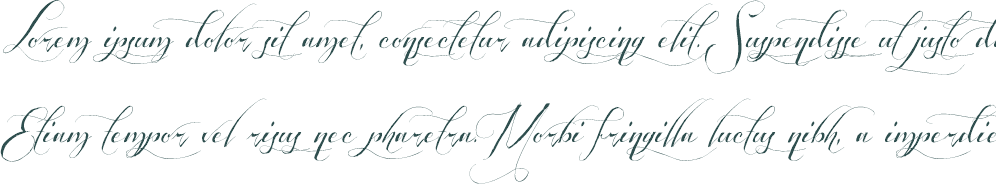 Lorem ipsum dolor sit amet, consectetur adipiscing elit. Suspendisse ut justo
Etiam tempor vel risus nec pharetra. Morbi fringilla luctus nibh, a imperdie